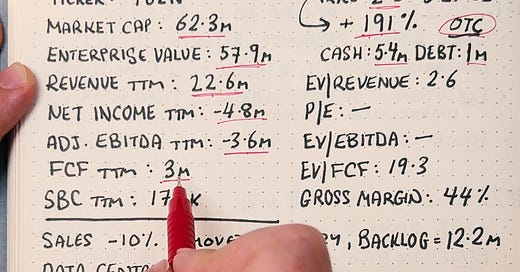 MARKET CAP: 62.3M
→ + 191% OTC
ENTERPRISE VALUE: 57.9M
CASH: 5.4M DEBT: 1M
REVENUE TTM: 22.6M
EV/REVENUE: 2.6
NET INCOME TTM: -4.8M
P/E: —
ADJ. EBITDA TTM: -3.6M
EV/EBITDA: —
FCF TTM: 3M
EV/FCF: 19.3
SBC TTM:
GROSS MARGIN: 44%
SALES -10%. BACKLOG = 12.2M